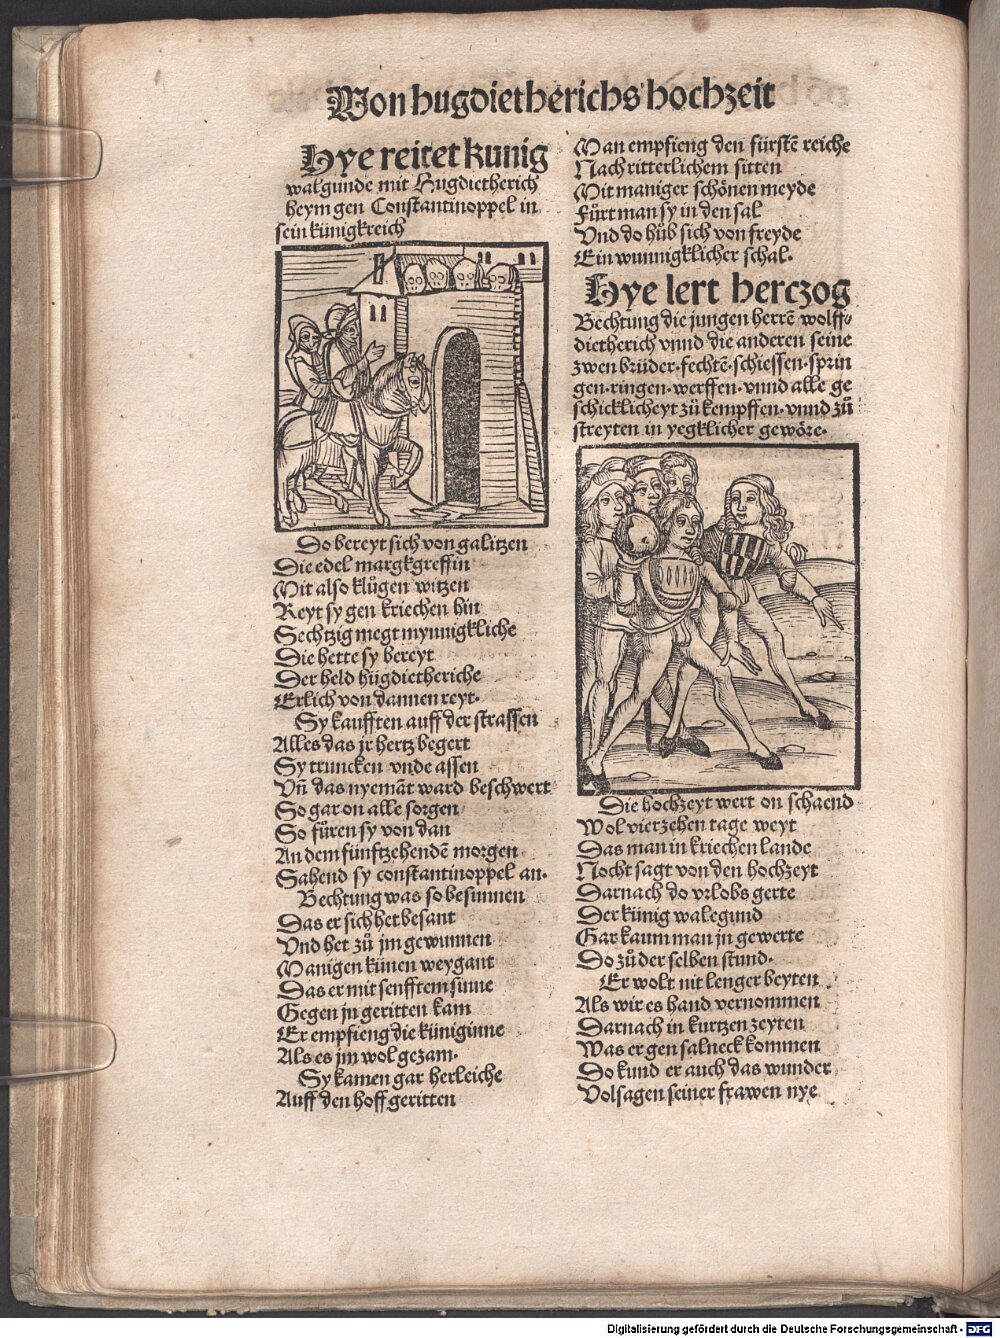 Von hugdietherichs hochzeit
Hye reitet kunig
walgunde mit Hugdietherich
heym gen Constantinoppel in
sein künigkreich
Do bereyt sich von galitzen
Die edel margkgreffin
Mit also klůgen witzen
Reyt sy gen kriechen hin
Sechtzig megt mynnigkliche
Die hette sy bereyt
Der held hůgdietheriche
Erlich von dannen reyt.
Sy kaufften auff der strassen
Alles das jr hertz begert
Sy truncken vnde assen
Vñ das nyemãt ward beschwert
So gar on alle sorgen
So fůren sy von dan
An dem fünftzehendẽ morgen
Sahend sy constantinoppel an.
Bechtung was so besunnen
Das er sich het besant
Vnd het zů jm gewunnen
Manigen künen weygant
Das er mit senfftem sinne
Gegen jn geritten kam
Er empfieng die küniginne
Als es jm wol gezam.
Sy kamen gar herleiche
Auff den hoff geritten
Man empfieng den fürstẽ reiche
Nach ritterlichem sitten
Mit maniger schönen meyde
Fůrt man sy in den sal
Vnd do hůb sich von freyde
Ein wunnigklicher schal.
Hye lert herczog
Bechtung die jungen herrẽ wolff-
dietherich vnnd die anderen seine
zwen brüder. fechtẽ. schiessen. sprin
gen. ringen. werffen. vnnd alle ge
schicklicheyt zů kempffen. vnnd zů
streyten in yegklicher gewöre.
Die hochzeyt wert on schaend
Wol vierzehen tage weyt
Das man in kriechen lande
Nocht sagt von den hochzeyt
Darnach do vrlobs gerte
Der künig walegund
Gar kaum man jn gewerte
Do zů der selben stund.
Er wolt nit lenger beyten
Als wir es hand vernommen
Darnach in kurtzen zeyten
Was er gen salneck kommen
Do kund er auch das wunder
Volsagen seiner frawen nye
Digitalisierung gefördert durch die Deutsche Forschungsgemeinschaft - DFG